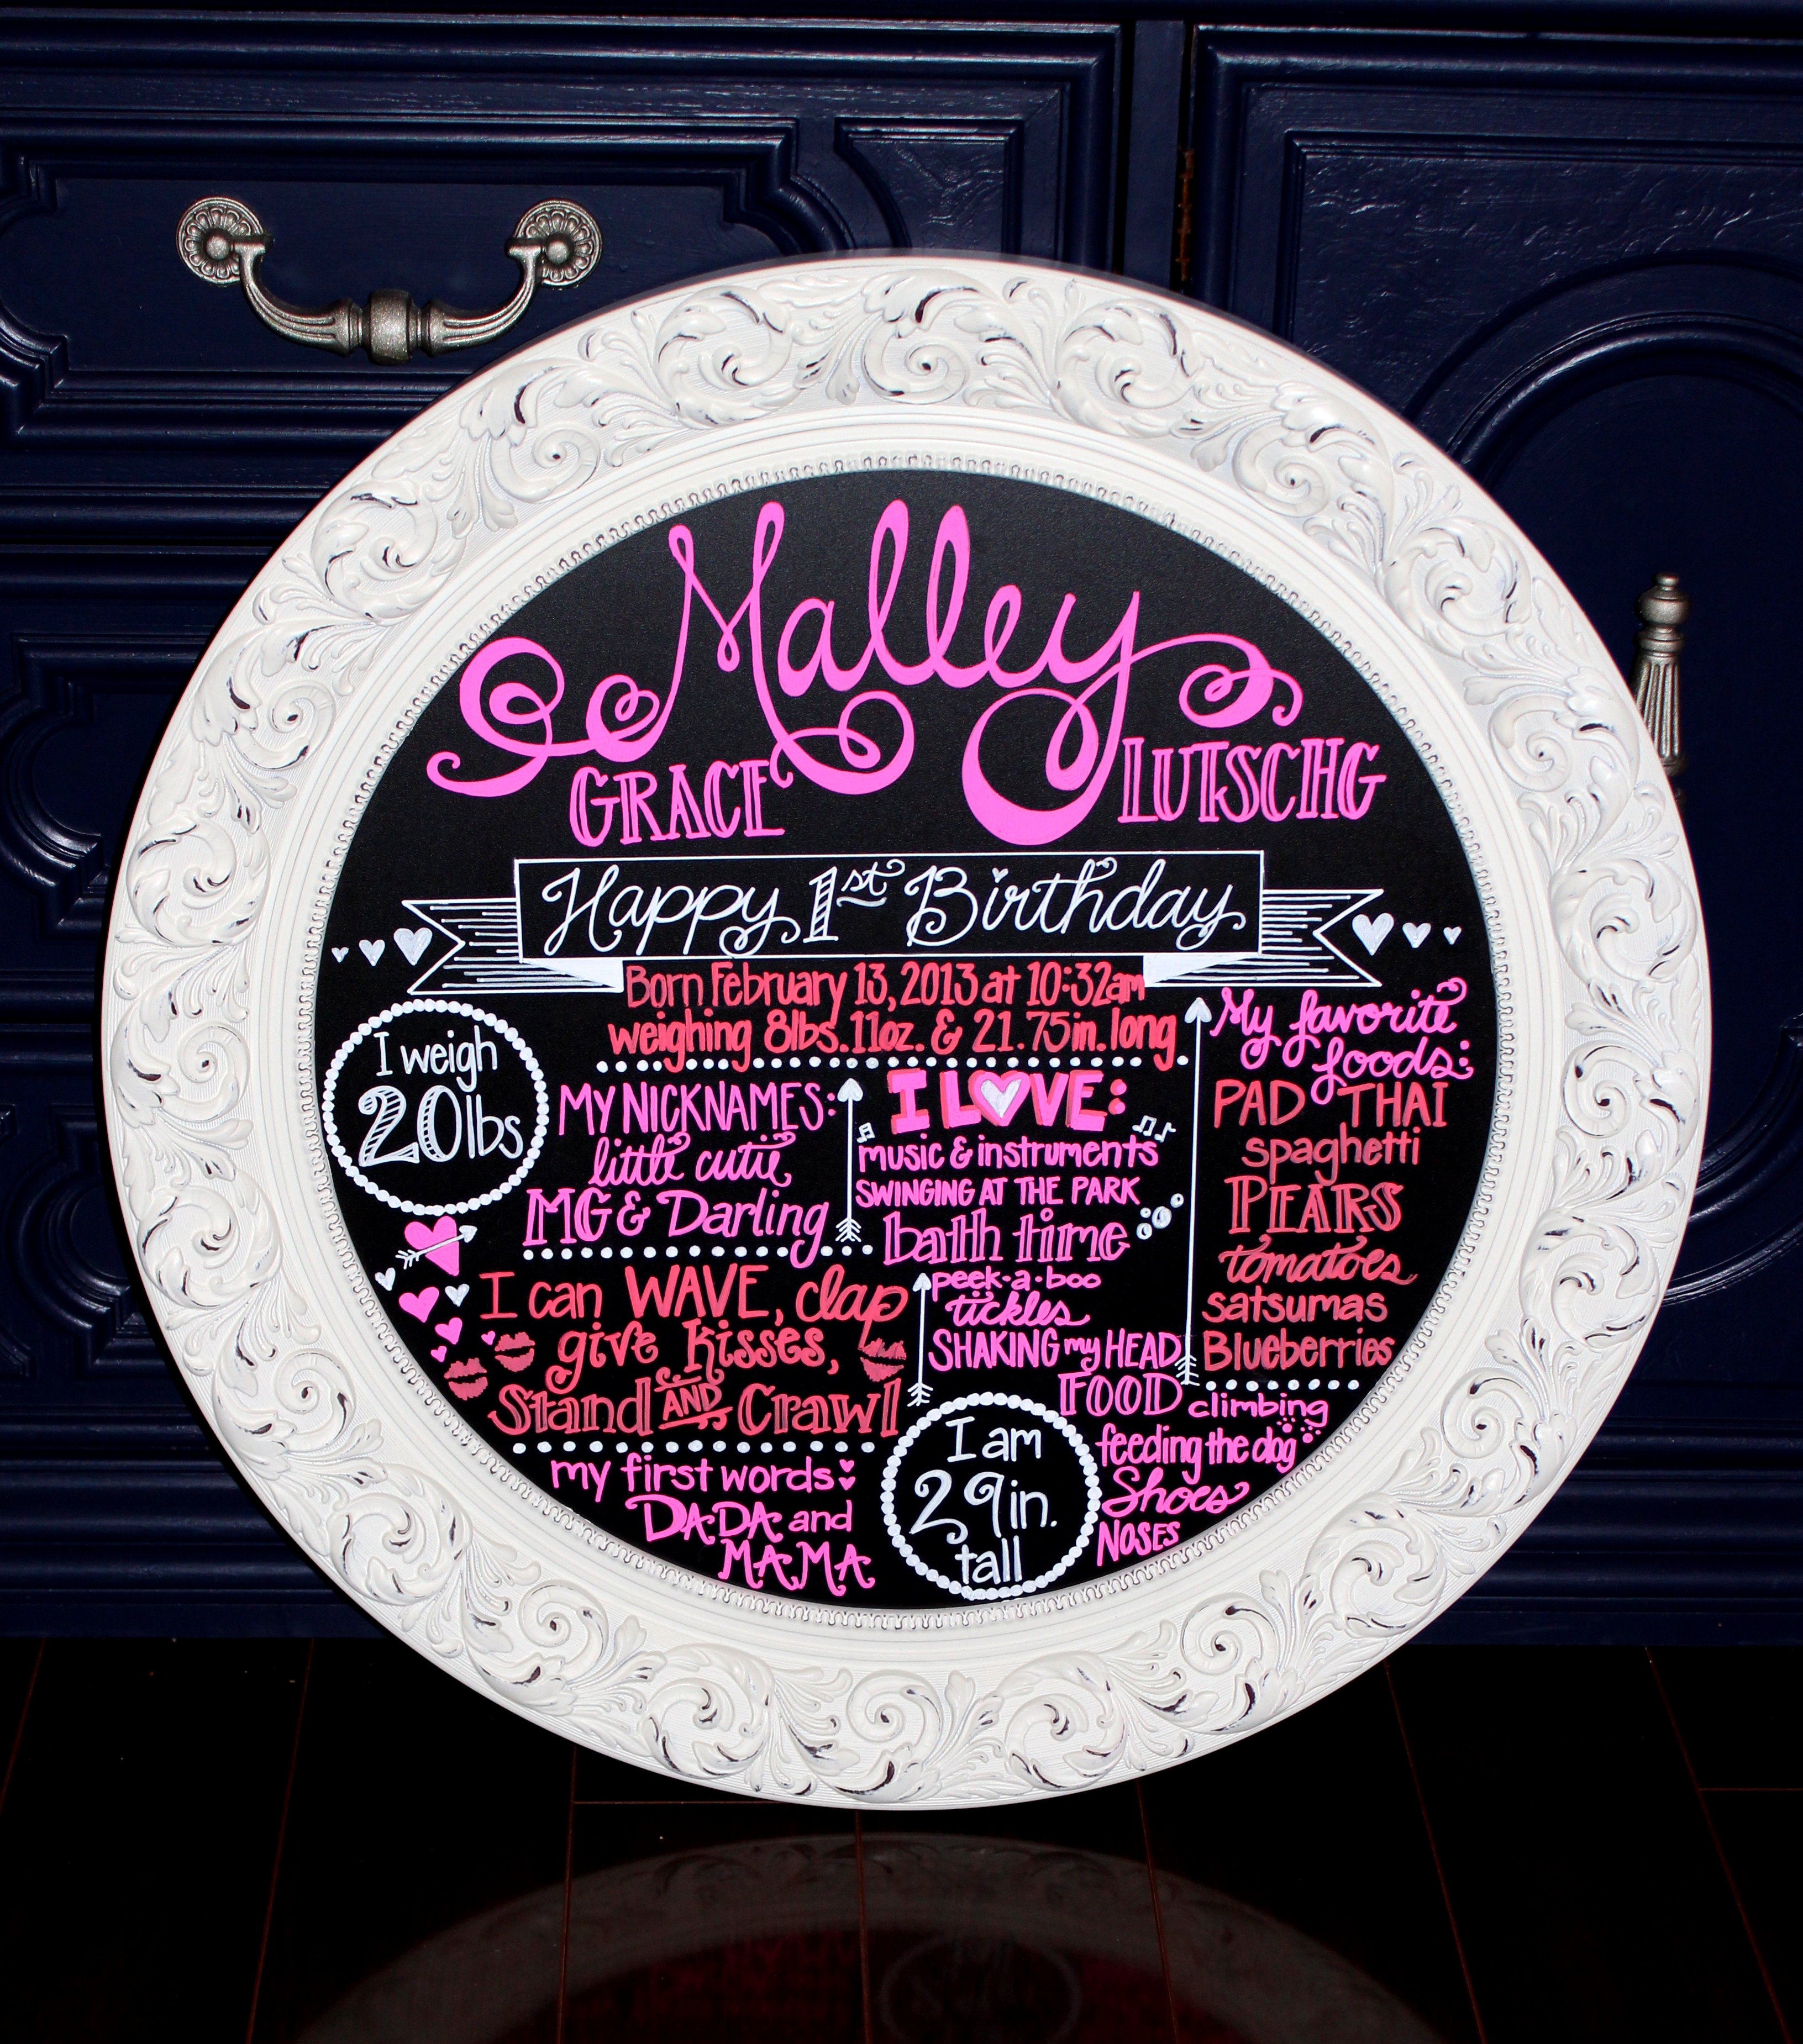 Malley
GRACE LUTSCHG
Happy 1st Birthday
Born February 13, 2013 at 10:32am
weighing 8lbs. 11oz. & 21.75in. long
I weigh
20lbs
MY NICKNAMES:
little cutie,
MG & Darling
I can WAVE, clap
give kisses,
Stand AND Crawl
my first words:
DADA and
MAMA
I LOVE:
music & instruments
SWINGING AT THE PARK
bath time
peek-a-boo
tickles
SHAKING my HEAD
FOOD climbing
feeding the dog
Shoes
NOSES
I am
29in.
tall
My favorite
foods:
PAD THAI
spaghetti
PEARS
tomatoes
satsumas
Blueberries